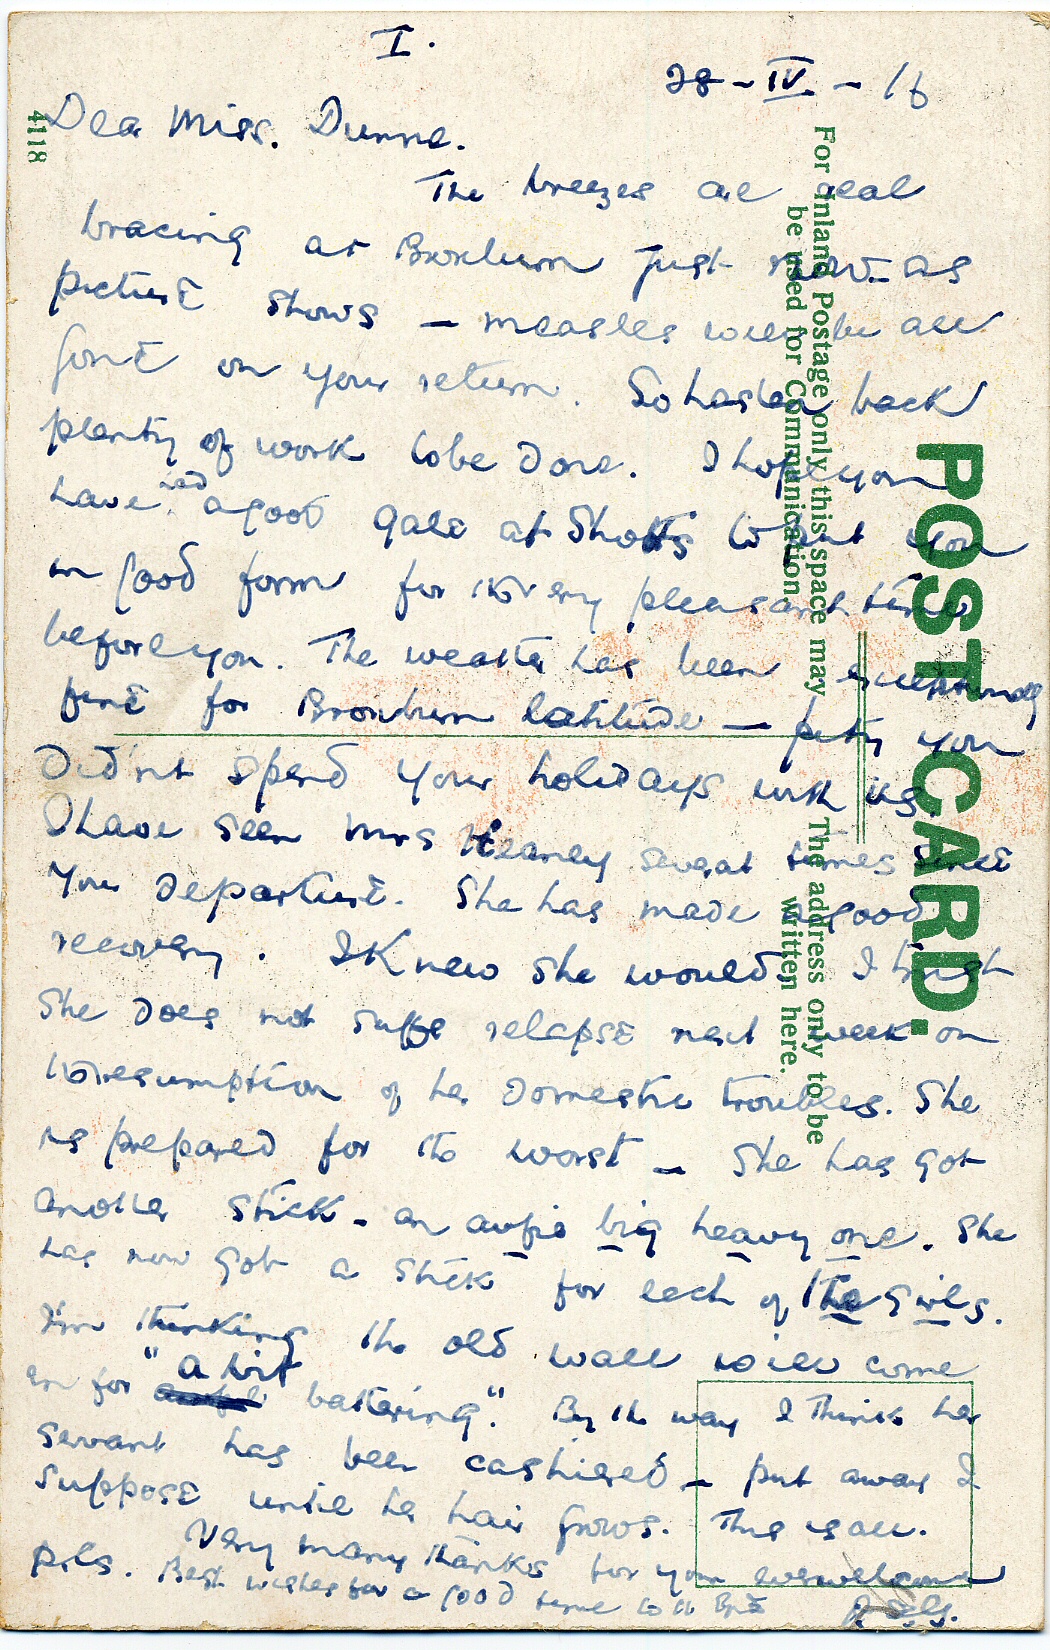 I.
28 - IV. - 16
Dear Miss. Dunne.
The breezes are real
bracing at Broxburn just now - as
picture shows - measles will be all
gone on your return. So hasten back
plenty of work to be done. I hope you
have had a good gale at Shotts to put you
in good form for the very pleasant time
before you. The weather has been exceedingly
fine for Broxburn latitude - pity you
didn't spend your holidays with us.
I have seen Mrs Heaney several times since
your departure. She has made a good
recovery. I knew she would. I trust
she does not suffer relapse next week on
the resumption of her domestic troubles. She
is prepared for the worst - She has got
another stick - an awful big heavy one. She
has now got a stick for each of the girls.
I'm thinking the old wall will come
in for "a bit battering". By the way I think her
servant has been cashiered - put away I
suppose until her hair grows. This is all.
Very many thanks for your ever welcome
p.cs. Best wishes for a good time to the
POST CARD.
For Inland Postage only, this space may
be used for Communication.
The address only to be
written here.
4118